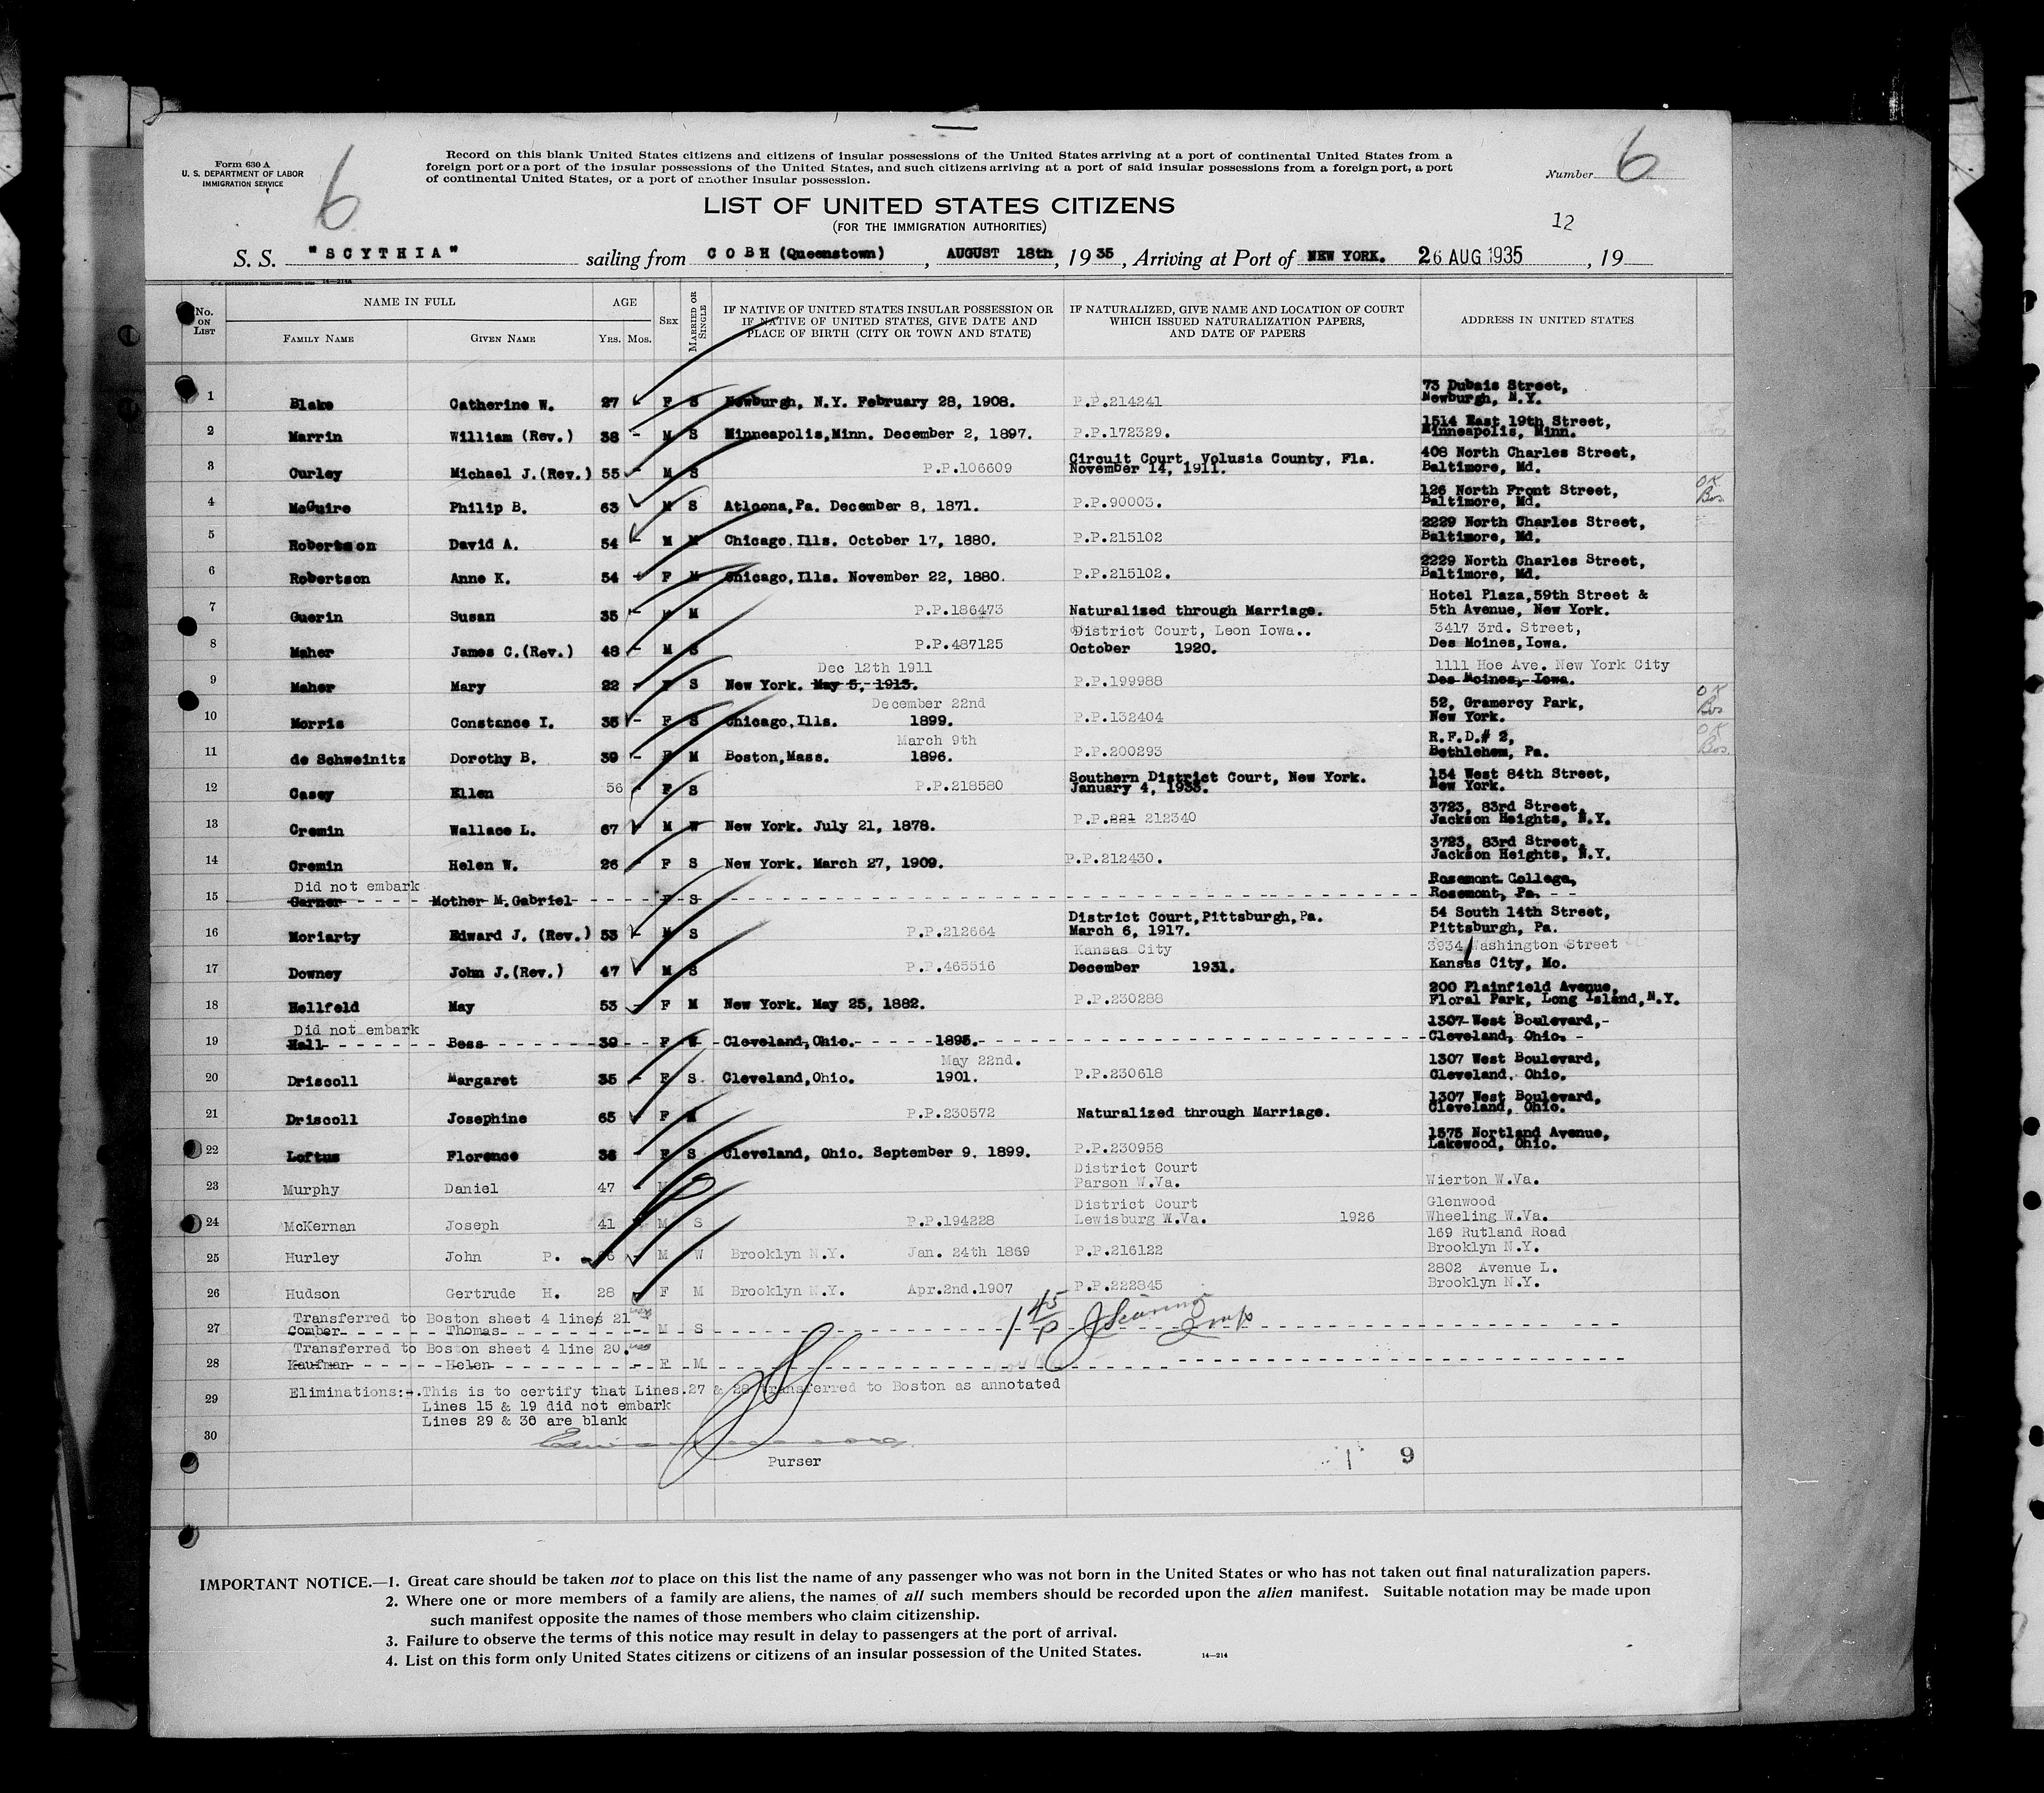 Form 630 A
U. S. DEPARTMENT OF LABOR
IMMIGRATION SERVICE
6
Record on this blank United States citizens and citizens of insular possessions of the United States arriving at a port of continental United States from a
foreign port or a port of the insular possessions of the United States, and such citizens arriving at a port of said insular possessions from a foreign port, a port
of continental United States, or a port of another insular possession.
Number 6
LIST OF UNITED STATES CITIZENS
(FOR THE IMMIGRATION AUTHORITIES)
12
S. S. "SCYTHIA" sailing from COBH (Queenstown), AUGUST 18th, 1935, Arriving at Port of NEW YORK. 26 AUG 1935, 19
No. ON LIST
NAME IN FULL
FAMILY NAME GIVEN NAME
AGE
YRS. MOS.
SEX
MARRIED OR SINGLE
IF NATIVE OF UNITED STATES INSULAR POSSESSION OR
IF NATIVE OF UNITED STATES, GIVE DATE AND
PLACE OF BIRTH (CITY OR TOWN AND STATE)
IF NATURALIZED, GIVE NAME AND LOCATION OF COURT
WHICH ISSUED NATURALIZATION PAPERS,
AND DATE OF PAPERS
ADDRESS IN UNITED STATES
73 Dubais Street,
1 Blake Catherine W. 27 F S Newburgh, N.Y. February 28, 1908. P.P.214241 Newburgh, N.Y.
1514 East 19th Street,
2 Marrin William (Rev.) 38 - M S Minneapolis,Minn. December 2, 1897. P.P.172329. Minneapolis, Minn.
Circuit Court, Volusia County, Fla. 408 North Charles Street,
3 Curley Michael J.(Rev.) 55 - M S P.P.106609 November 14, 1911. Baltimore, Md.
126 North Front Street, OK
4 McGuire Philip B. 63 M S Atloona,Pa. December 8, 1871. P.P.90003. Baltimore, Md. Bos.
2229 North Charles Street,
5 Robertson David A. 54 - M M Chicago,Ills. October 17, 1880. P.P.215102 Baltimore, Md.
2229 North Charles Street,
6 Robertson Anne K. 54 - F M Chicago,Ills. November 22, 1880. P.P.215102. Baltimore, Md.
Hotel Plaza,59th Street &
7 Guerin Susan 35 - M P.P.186473 Naturalized through Marriage. 5th Avenue, New York.
District Court, Leon Iowa.. 3417 3rd. Street,
8 Maher James C.(Rev.) 48 - M S P.P.487125 October 1920. Des Moines,Iowa.
Dec 12th 1911 1111 Hoe Ave. New York City
9 Maher Mary 22 - F S New York. May 5, 1913. P.P.199988 Des Moines, Iowa.
December 22nd 52, Gramercy Park, OK
10 Morris Constance I. 35 - F S Chicago,Ills. 1899. P.P.132404 New York. Bos
March 9th R.F.D.# 2, OK
11 de Schweinitz Dorothy B. 39 - F M Boston,Mass. 1896. P.P.200293 Bethlehem, Pa. Bos.
Southern District Court, New York. 154 West 84th Street,
12 Casey Ellen 56 - F S P.P.218580 January 4, 1933. New York.
3723, 83rd Street,
13 Cremin Wallace L. 67 M W New York. July 21, 1878. P.P.221 212340 Jackson Heights, N.Y.
3723, 83rd Street,
14 Cremin Helen W. 26 - F S New York. March 27, 1909. P.P.212430. Jackson Heights, N.Y.
Did not embark Rosemont College,
15 Garner Mother M.Gabriel F S Rosemont, Pa.
District Court,Pittsburgh,Pa. 54 South 14th Street,
16 Moriarty Edward J. (Rev.) 53 - M S P.P.212664 March 6, 1917. Pittsburgh, Pa.
Kansas City 3934 Washington Street
17 Downey John J.(Rev.) 47 M S P.P.465516 December 1931. Kansas City, Mo.
200 Plainfield Avenue,
18 Hellfeld May 53 - F M New York. May 25, 1882. P.P.230288 Floral Park, Long Island,N.Y.
Did not embark 1307 West Boulevard,
19 Hall Bess 39 F W Cleveland,Ohio. 1895. Cleveland, Ohio.
May 22nd. 1307 West Boulevard,
20 Driscoll Margaret 35 - F S. Cleveland,Ohio. 1901. P.P.230618 Cleveland, Ohio.
1307 West Boulevard,
21 Driscoll Josephine 65 F M P.P.230572 Naturalized through Marriage. Cleveland, Ohio.
1575 Nortland Avenue,
22 Loftus Florence 36 F S Cleveland, Ohio. September 9, 1899. P.P.230958 Lakewood, Ohio.
District Court
23 Murphy Daniel 47 - M Parson W.Va. Wierton W.Va.
District Court Glenwood
24 McKernan Joseph 41 M S P.P.194228 Lewisburg W.Va. 1926 Wheeling W.Va.
169 Rutland Road
25 Hurley John P. M W Brooklyn N.Y. Jan. 24th 1869 P.P.216122 Brooklyn N.Y.
2802 Avenue L.
26 Hudson Gertrude H. 28 F M Brooklyn N.Y. Apr.2nd.1907 P.P.222845 Brooklyn N.Y.
Transferred to Boston sheet 4 lines 21
27 Comber Thomas - M S
Transferred to Boston sheet 4 line 20.
28 Kaufman Helen - F M
29 Eliminations:-.This is to certify that Lines.27 & 28 transferred to Boston as annotated
Lines 15 & 19 did not embark
Lines 29 & 30 are blank
30
Purser
1 9
IMPORTANT NOTICE.—1. Great care should be taken not to place on this list the name of any passenger who was not born in the United States or who has not taken out final naturalization papers.
2. Where one or more members of a family are aliens, the names of all such members should be recorded upon the alien manifest. Suitable notation may be made upon
such manifest opposite the names of those members who claim citizenship.
3. Failure to observe the terms of this notice may result in delay to passengers at the port of arrival.
4. List on this form only United States citizens or citizens of an insular possession of the United States.
14—214